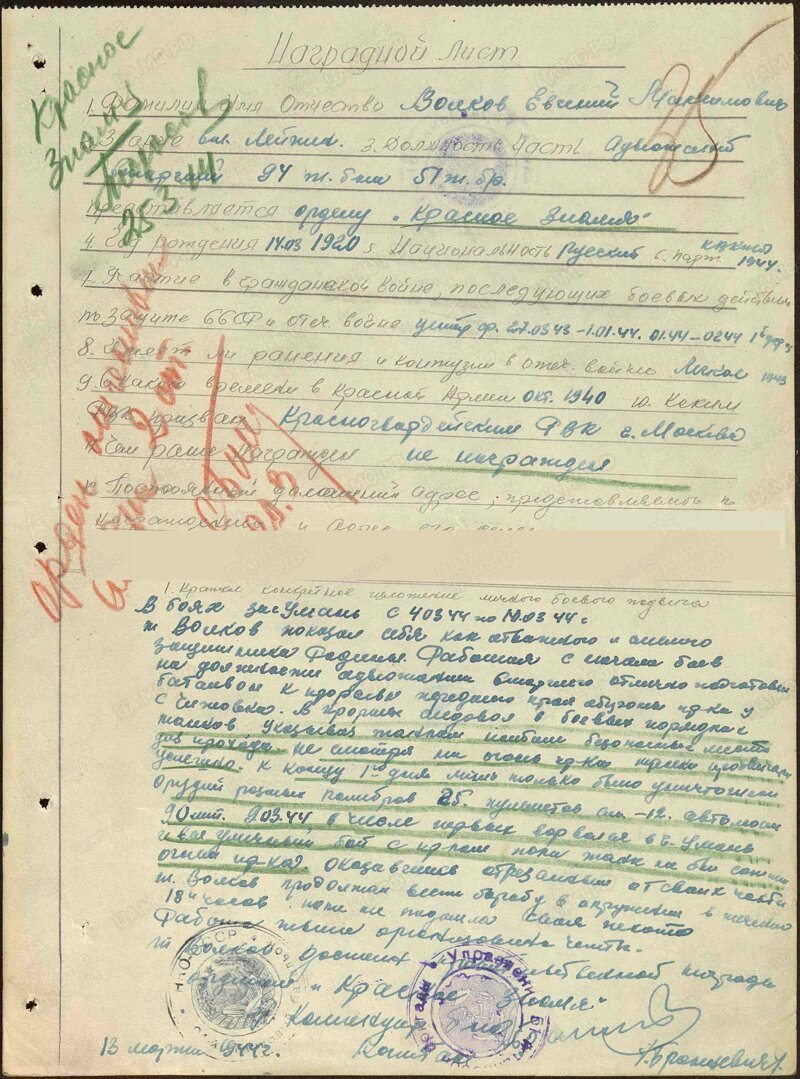 Наградной лист
Красное
Знамя
253
1. Фамилия Имя Отчество Волков Евгений Максимович
2. Звание мл. Лейтен. 3. Должность Часть Адъютант
старший 94 т. б-на 51 т. бр.
представляется ордену „Красное Знамя"
4. Год рождения 14.03 1920 г. Национальность Русский 6. парт. 1944 г.
7. Участие в гражданской войне, последующих боевых действиях
по защите СССР и отеч. войне центр. ф. 27.03.43-1.01.44. 01.44-02.44 1й укр. ф.
8. Имеет ли ранения и контузии в отеч. войне 1943
9. С какого времени в Красной Армии окт. 1940 10. Каким
РВК призван Красногвардейским РВК г. Москва
11. Чем ранее награжден не награжден
12. Постоянный домашний адрес, представляемого к
орден
2 ст.
1. Краткое конкретное изложение личного боевого подвига
В боях за г. Умань с 4.03.44 по 10.03.44 г.
т. Волков показал себя как отважного и смелого
защитника Родины. Работая с начала боев
на должности адъютанта старшего отлично подготовил
батальон к прорыву переднего края обороны пр-ка у
с Чижовка. В прорыве следовал в боевых порядках
танков указывая танкам наиболее безопасные места
для прохода. не смотря на огонь пр-ка танки
успешно. К концу 1го дня было уничтожено
орудий разных калибров пулеметов ст. -12. автомашин
9.03.44 в числе первых ворвался в г. Умань
и вел уличный бой с пр-ком пока танк не был
огнем пр-ка. оказавшись отрезанным от своих частей
т. Волков продолжал вести борьбу в окружении в течение
18и часов пока не подошла своя пехота
Работа штаба организована четко.
т. Волков достоин правительственной награды
ордена „Красное Знамя"
Командир
13 марта 1944 г. Капитан /Бронцевич/
НКО СССР
Управление